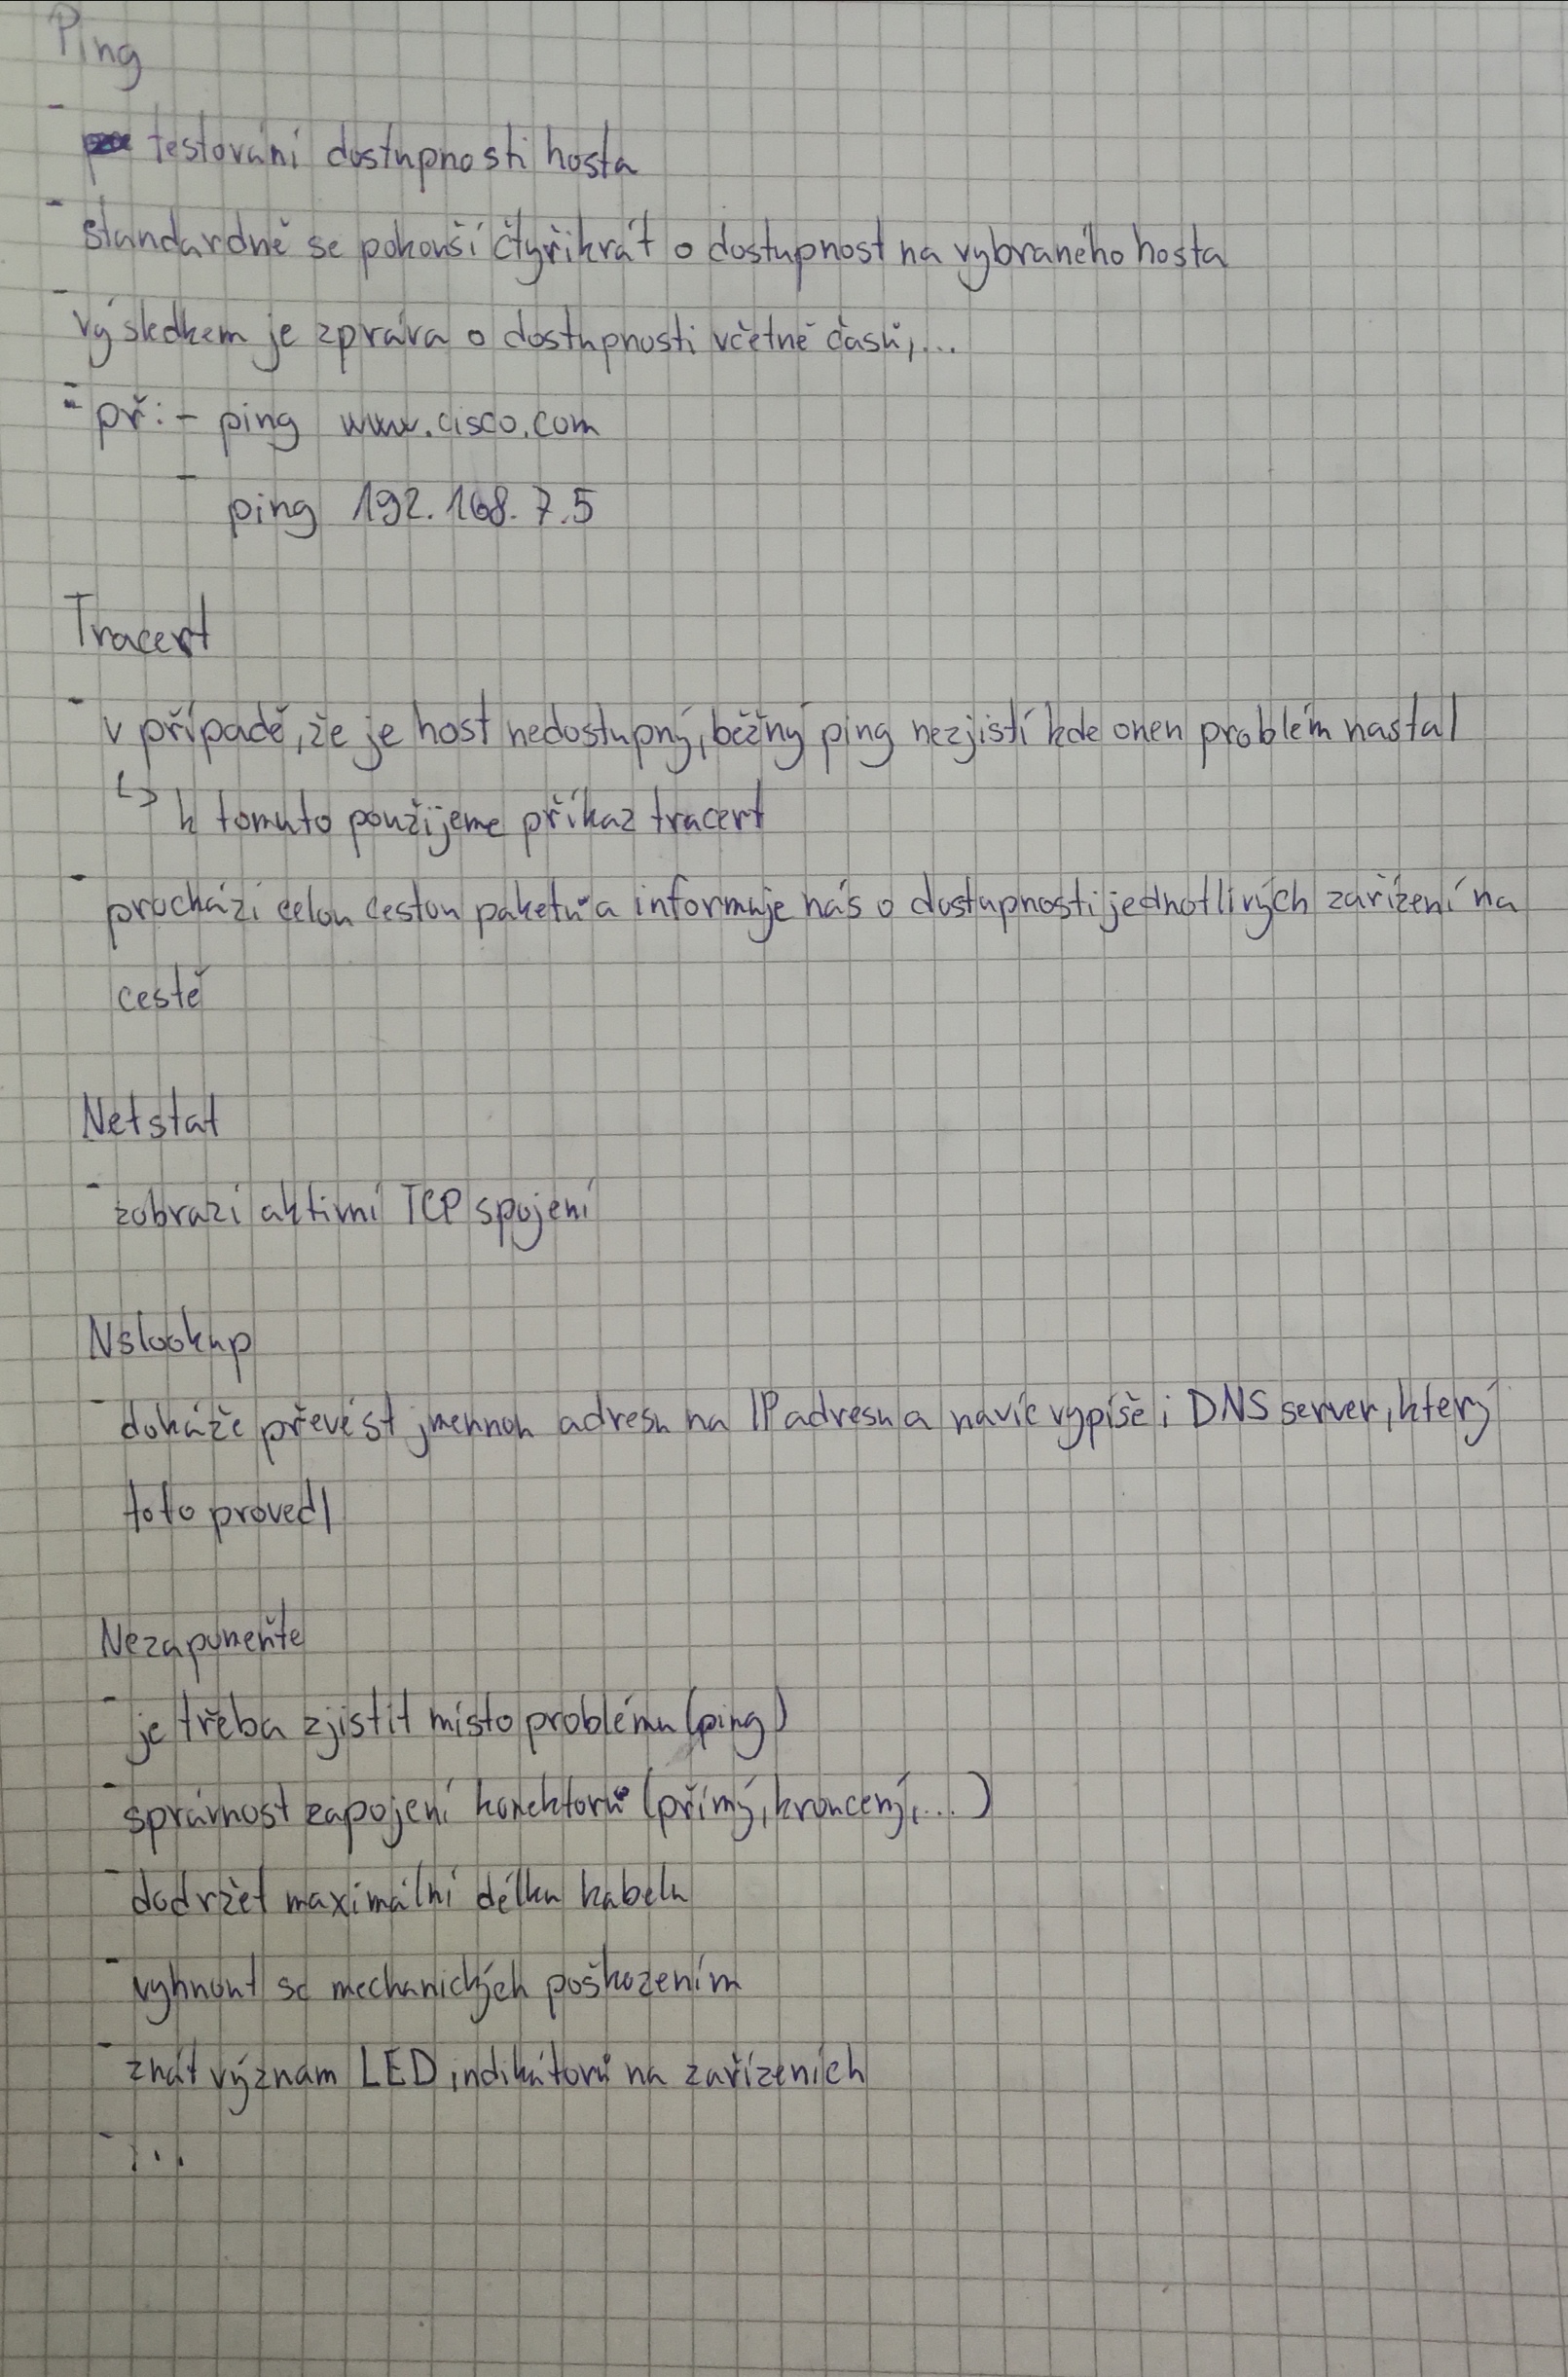 Ping
- testování dostupnosti hosta
- standardně se pokouší čtyřikrát o dostupnost na vybraného hosta
- výsledkem je zpráva o dostupnosti včetně časů,...
- př: - ping www.cisco.com
- ping 192.168.7.5
Tracert
- v případě, že je host nedostupný, běžný ping nezjistí kde onen problém nastal
↳ k tomuto použijeme příkaz tracert
- prochází celou cestou paketů a informuje nás o dostupnosti jednotlivých zařízení na
cestě
Netstat
- zobrazí aktivní TCP spojení
Nslookup
- dokáže převést jmennou adresu na IP adresu a navíc vypíše i DNS server, který
toto provedl
Nezapomeňte
- je třeba zjistit místo problému (ping)
- správnost zapojení konektorů (přímý, kroucený,...)
- dodržet maximální délku kabelu
- vyhnout se mechanických poškozením
- znát význam LED indikátorů na zařízeních
- ...